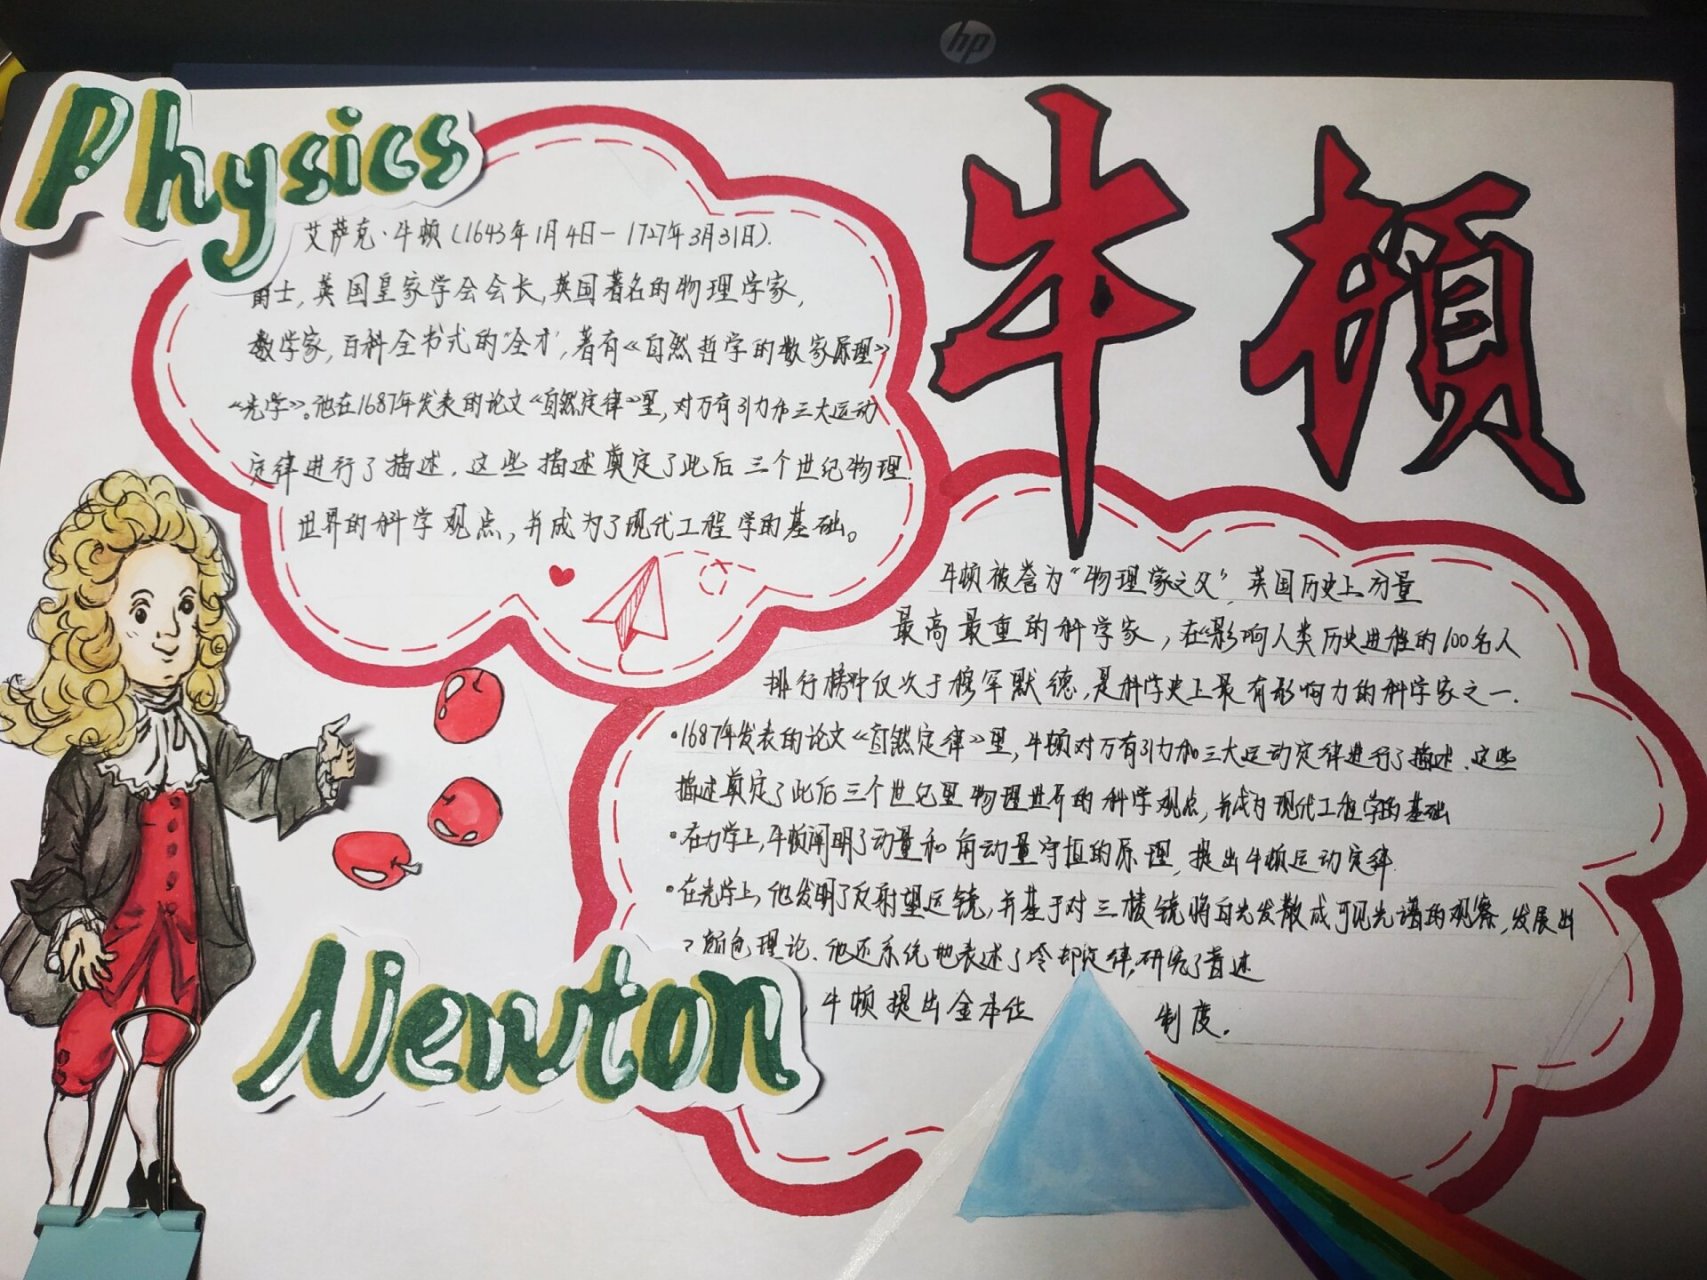 hp
Physics
牛頓
艾萨克·牛顿（1643年1月4日－1727年3月31日）.
爵士，英国皇家学会会长，英国著名的物理学家，
数学家，百科全书式的"全才"，著有《自然哲学的数家原理》
《光学》。他在1687年发表的论文《自然定律》里，对万有引力和三大运动
定律进行了描述．这些描述奠定了此后三个世纪物理
世界的科学观点，并成为了现代工程学的基础。
牛顿被誉为"物理家之父"，英国历史上分量
最高最重的科学家，在《影响人类历史进程的100名人
排行榜中仅次于穆罕默德，是科学史上最有影响力的科学家之一．
·1687年发表的论文《自然定律》里，牛顿对万有引力和三大运动定律进行了描述．这些
描述奠定了此后三个世纪里物理世界的科学观点，并成为现代工程学的基础
·在力学上，牛顿阐明了动量和角动量守恒的原理，提出牛顿运动定律
·在光学上，他发明了反射望远镜，并基于对三棱镜将白光发散成可见光谱的观察，发展出
了颜色理论．他还系统地表述了冷却定律，研究了音速
，牛顿提出金本位 制度．
Newton